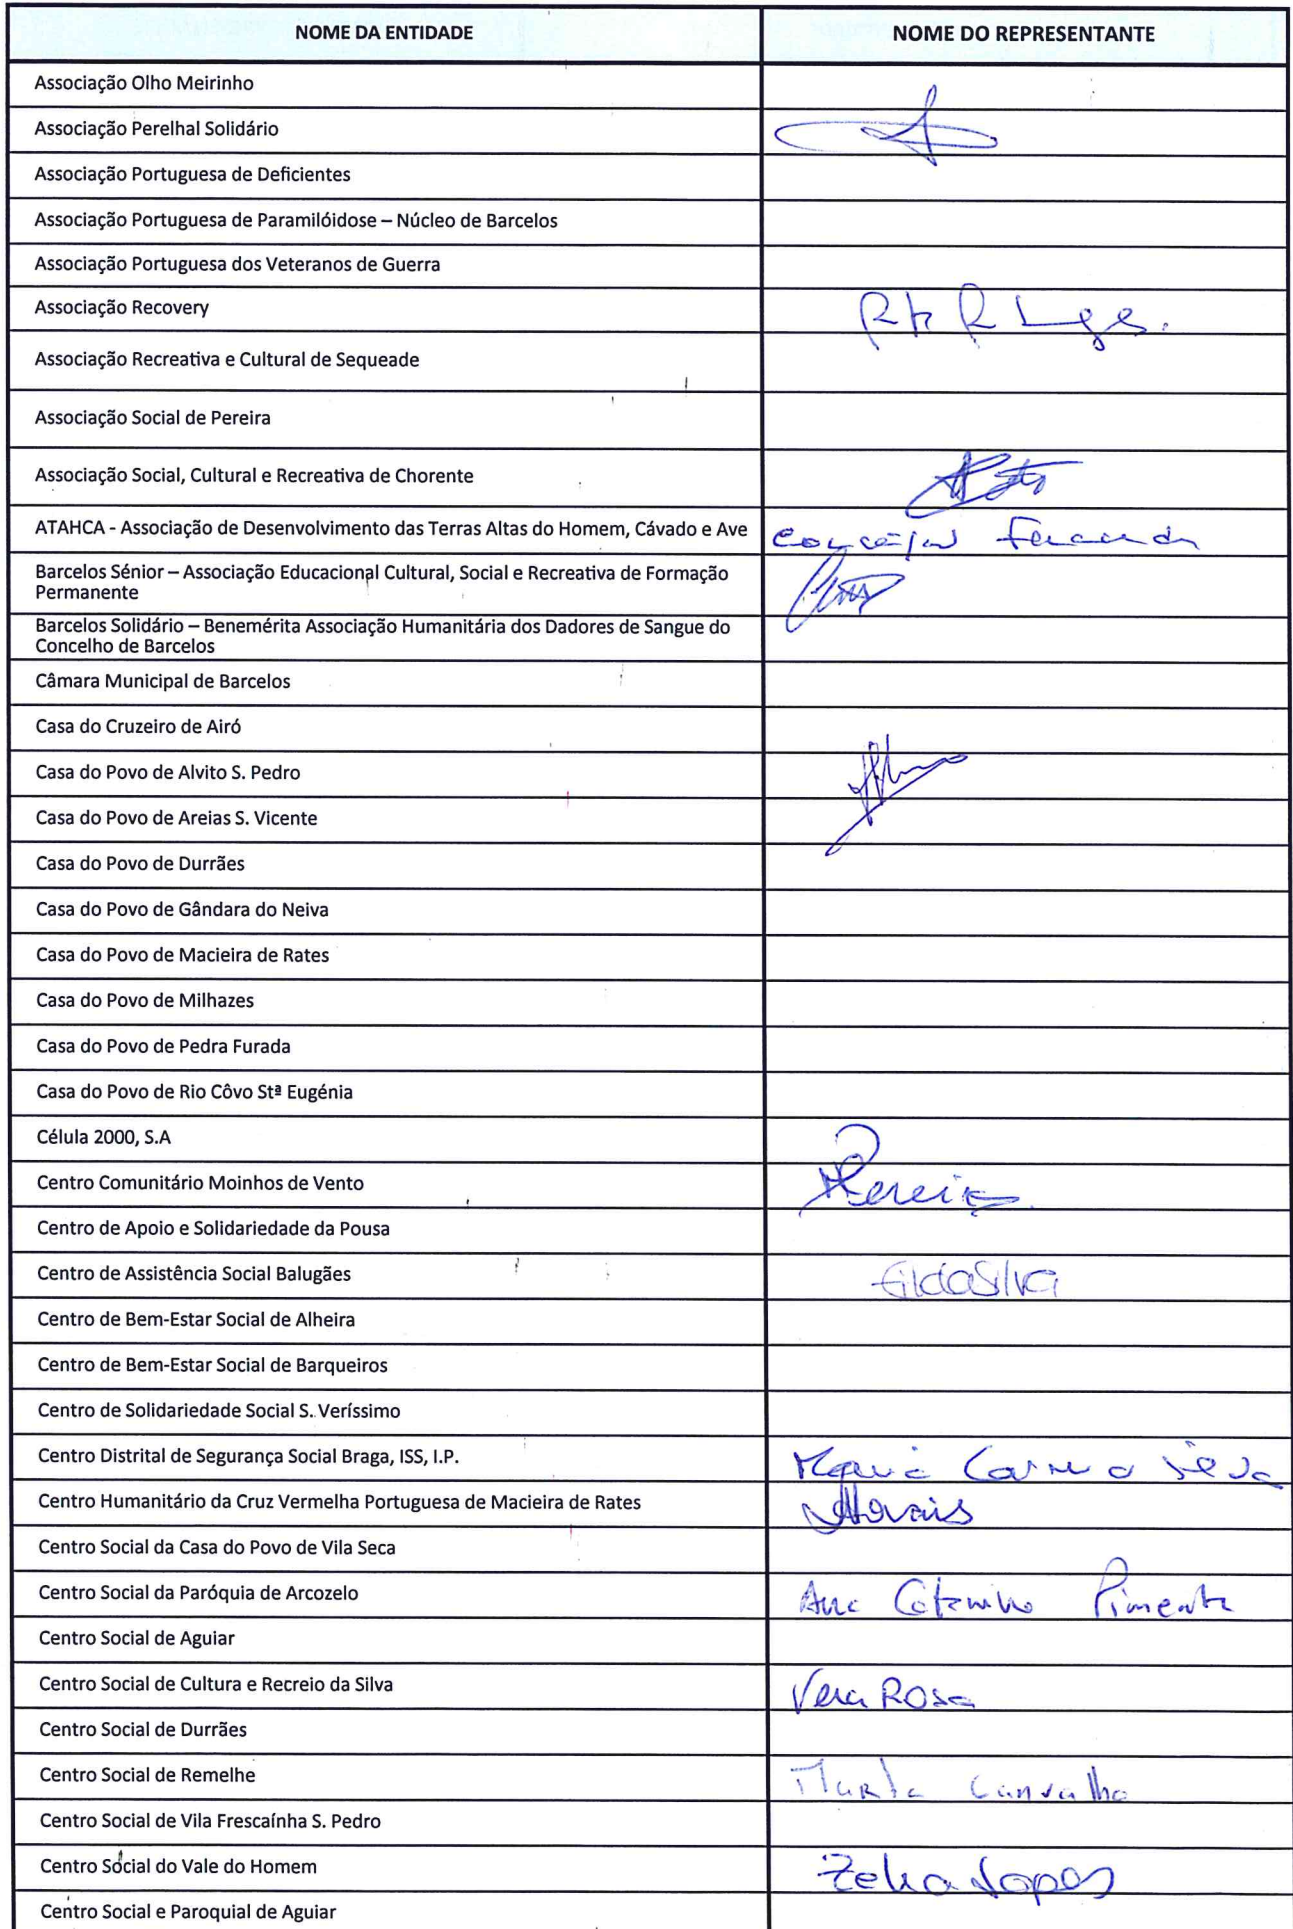 NOME DA ENTIDADE NOME DO REPRESENTANTE
Associação Olho Meirinho
Associação Perelhal Solidário
Associação Portuguesa de Deficientes
Associação Portuguesa de Paramilóidose – Núcleo de Barcelos
Associação Portuguesa dos Veteranos de Guerra
Associação Recovery
Associação Recreativa e Cultural de Sequeade
Associação Social de Pereira
Associação Social, Cultural e Recreativa de Chorente
ATAHCA - Associação de Desenvolvimento das Terras Altas do Homem, Cávado e Ave
Barcelos Sénior – Associação Educacional Cultural, Social e Recreativa de Formação
Permanente
Barcelos Solidário – Benemérita Associação Humanitária dos Dadores de Sangue do
Concelho de Barcelos
Câmara Municipal de Barcelos
Casa do Cruzeiro de Airó
Casa do Povo de Alvito S. Pedro
Casa do Povo de Areias S. Vicente
Casa do Povo de Durrães
Casa do Povo de Gândara do Neiva
Casa do Povo de Macieira de Rates
Casa do Povo de Milhazes
Casa do Povo de Pedra Furada
Casa do Povo de Rio Côvo Stª Eugénia
Célula 2000, S.A
Centro Comunitário Moinhos de Vento Pereira
Centro de Apoio e Solidariedade da Pousa
Centro de Assistência Social Balugães Gilda Silva
Centro de Bem-Estar Social de Alheira
Centro de Bem-Estar Social de Barqueiros
Centro de Solidariedade Social S. Veríssimo
Centro Distrital de Segurança Social Braga, ISS, I.P. Maria Carmo Silva
Centro Humanitário da Cruz Vermelha Portuguesa de Macieira de Rates
Centro Social da Casa do Povo de Vila Seca
Centro Social da Paróquia de Arcozelo Ana Catarina Pimenta
Centro Social de Aguiar
Centro Social de Cultura e Recreio da Silva Vera Rosa
Centro Social de Durrães
Centro Social de Remelhe Marta Carvalho
Centro Social de Vila Frescaínha S. Pedro
Centro Social do Vale do Homem Zelia Lopes
Centro Social e Paroquial de Aguiar